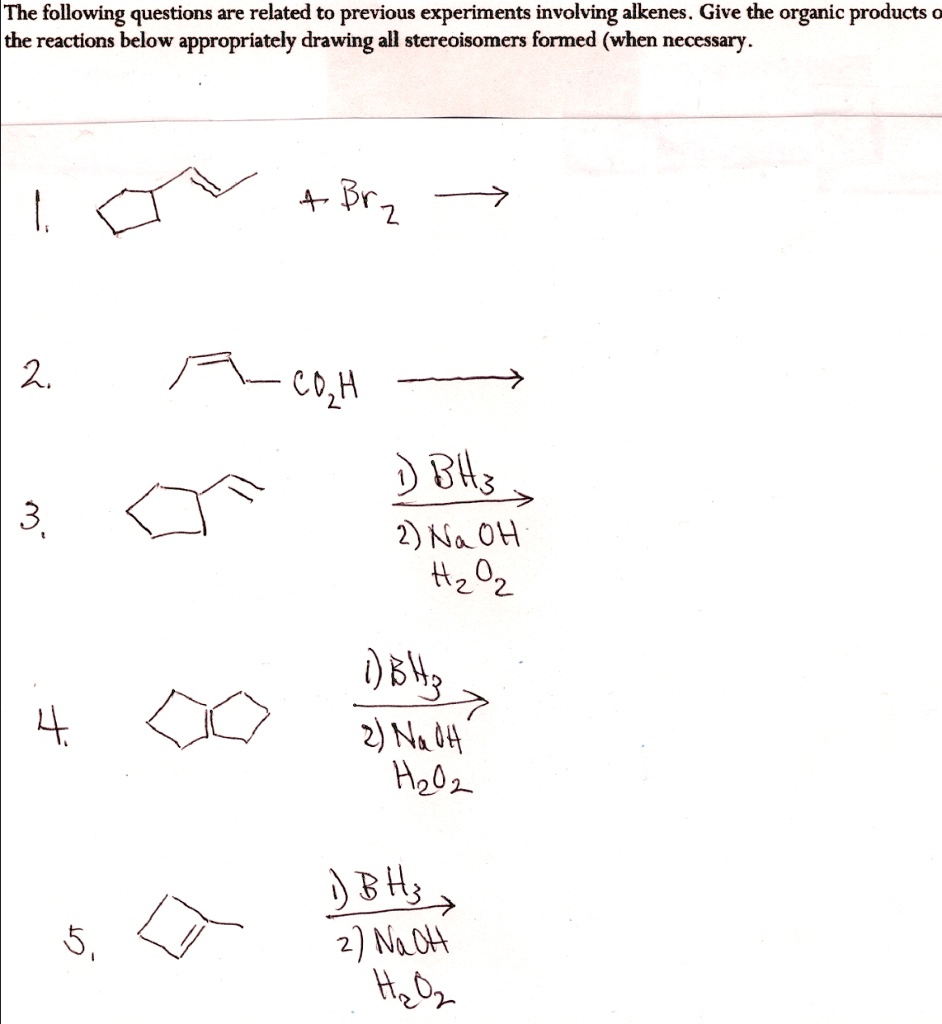 The following questions are related to previous experiments involving alkenes. Give the organic products
the reactions below appropriately drawing all stereoisomers formed (when necessary.
1. + Br2 →
2. CO2H →
3. 1) BH3
2) NaOH
H2O2
4. 1) BH3
2) NaOH
H2O2
5. 1) BH3
2) NaOH
H2O2